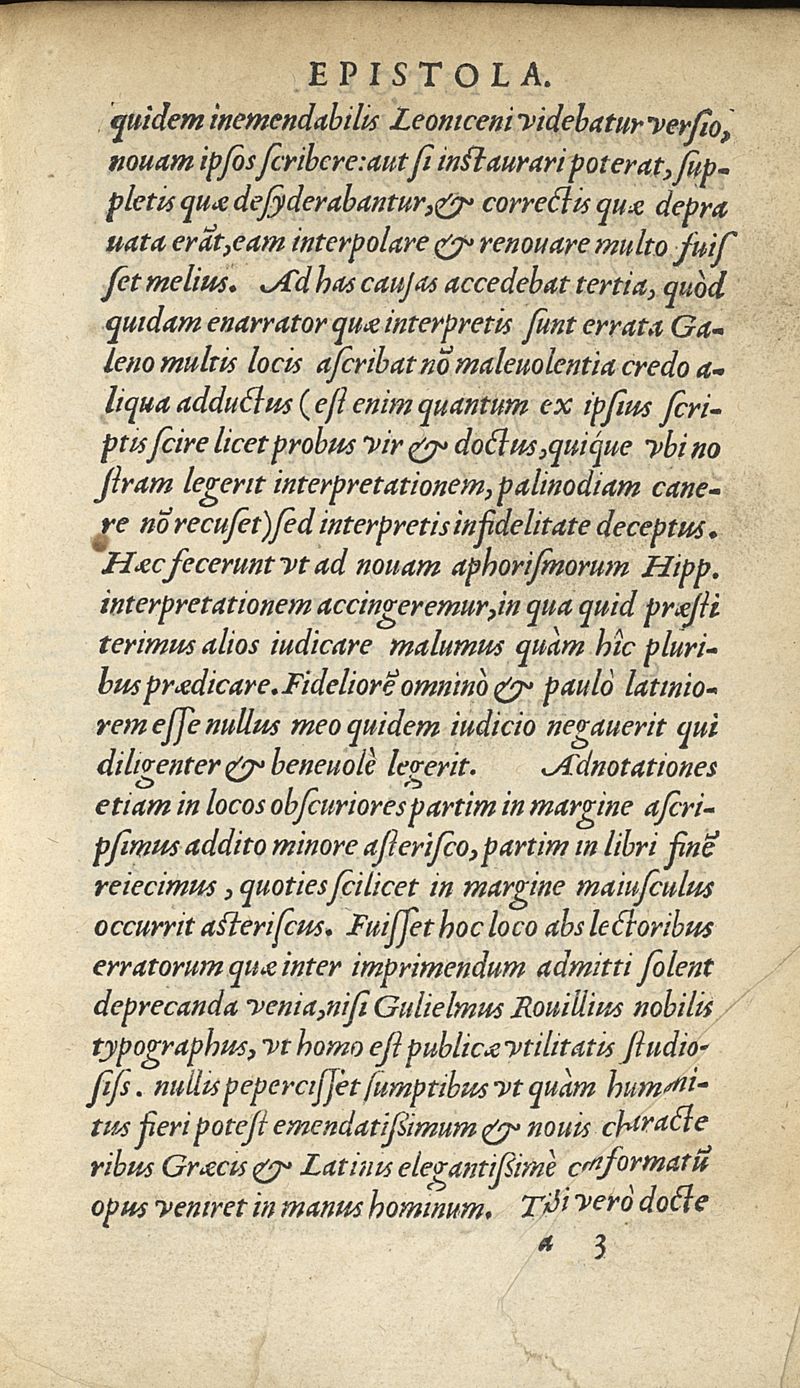 EPISTOLA.
quidem inemendabilis Leoniceni videbatur verſio,
nouam ipſos ſcribere: aut ſi inſtaurari poterat, ſup-
pletis quæ deſyderabantur, & correctis quæ depra
uata erāt, eam interpolare & renouare multo fuiſ
ſet melius. Ad has cauſas accedebat tertia, quòd
quidam enarrator quæ interpretis ſunt errata Ga-
leno multis locis aſcribat nō maleuolentia credo a-
liqua adductus (eſt enim quantum ex ipſius ſcri-
ptis ſcire licet probus vir & doctus, quiq́ue vbi no
ſtram legerit interpretationem, palinodiam cane-
re nō recuſet) ſed interpretis infidelitate deceptus.
Hæc fecerunt vt ad nouam aphoriſmorum Hipp.
interpretationem accingeremur, in qua quid præſti
terimus alios iudicare malumus quàm hîc pluri-
bus prædicare. Fideliorē omninò & paulò latinio-
rem eſſe nullus meo quidem iudicio negauerit qui
diligenter & beneuolè legerit. Adnotationes
etiam in locos obſcuriores partim in margine aſcri-
pſimus addito minore aſteriſco, partim in libri finē
reiecimus, quoties ſcilicet in margine maiuſculus
occurrit aſteriſcus. Fuiſſet hoc loco abs lectoribus
erratorum quæ inter imprimendum admitti ſolent
deprecanda venia, niſi Gulielmus Rouillius nobilis
typographus, vt homo eſt publicæ vtilitatis ſtudio-
ſiſs. nullis peperciſſet ſumptibus vt quàm humani-
tus fieri poteſt emendatiſsimum & nouis characte
ribus Græcis & Latinis elegantiſsimè conformatū
opus veniret in manus hominum. Tibi verò docte
a 3